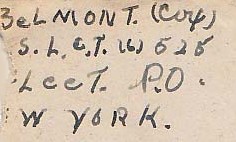 BELMONT. (Coxf)
S. L. C. T. (6) 525
LCCT. P.O.
W YORK.